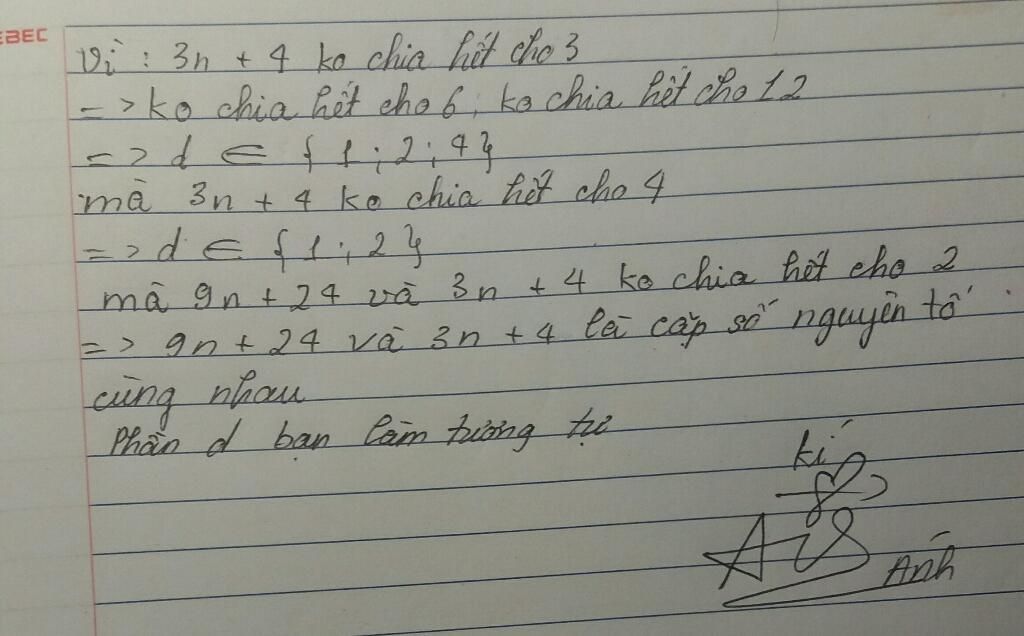 EBEC
Vì : 3n + 4 ko chia hết cho 3
=> ko chia hết cho 6, ko chia hết cho 12
=> d ∈ {1; 2; 4}
mà 3n + 4 ko chia hết cho 4
=> d ∈ {1; 2}
mà 9n + 24 và 3n + 4 ko chia hết cho 2
=> 9n + 24 và 3n + 4 là cặp số nguyên tố
cùng nhau
Phần d bạn làm tương tự
kí
Anh